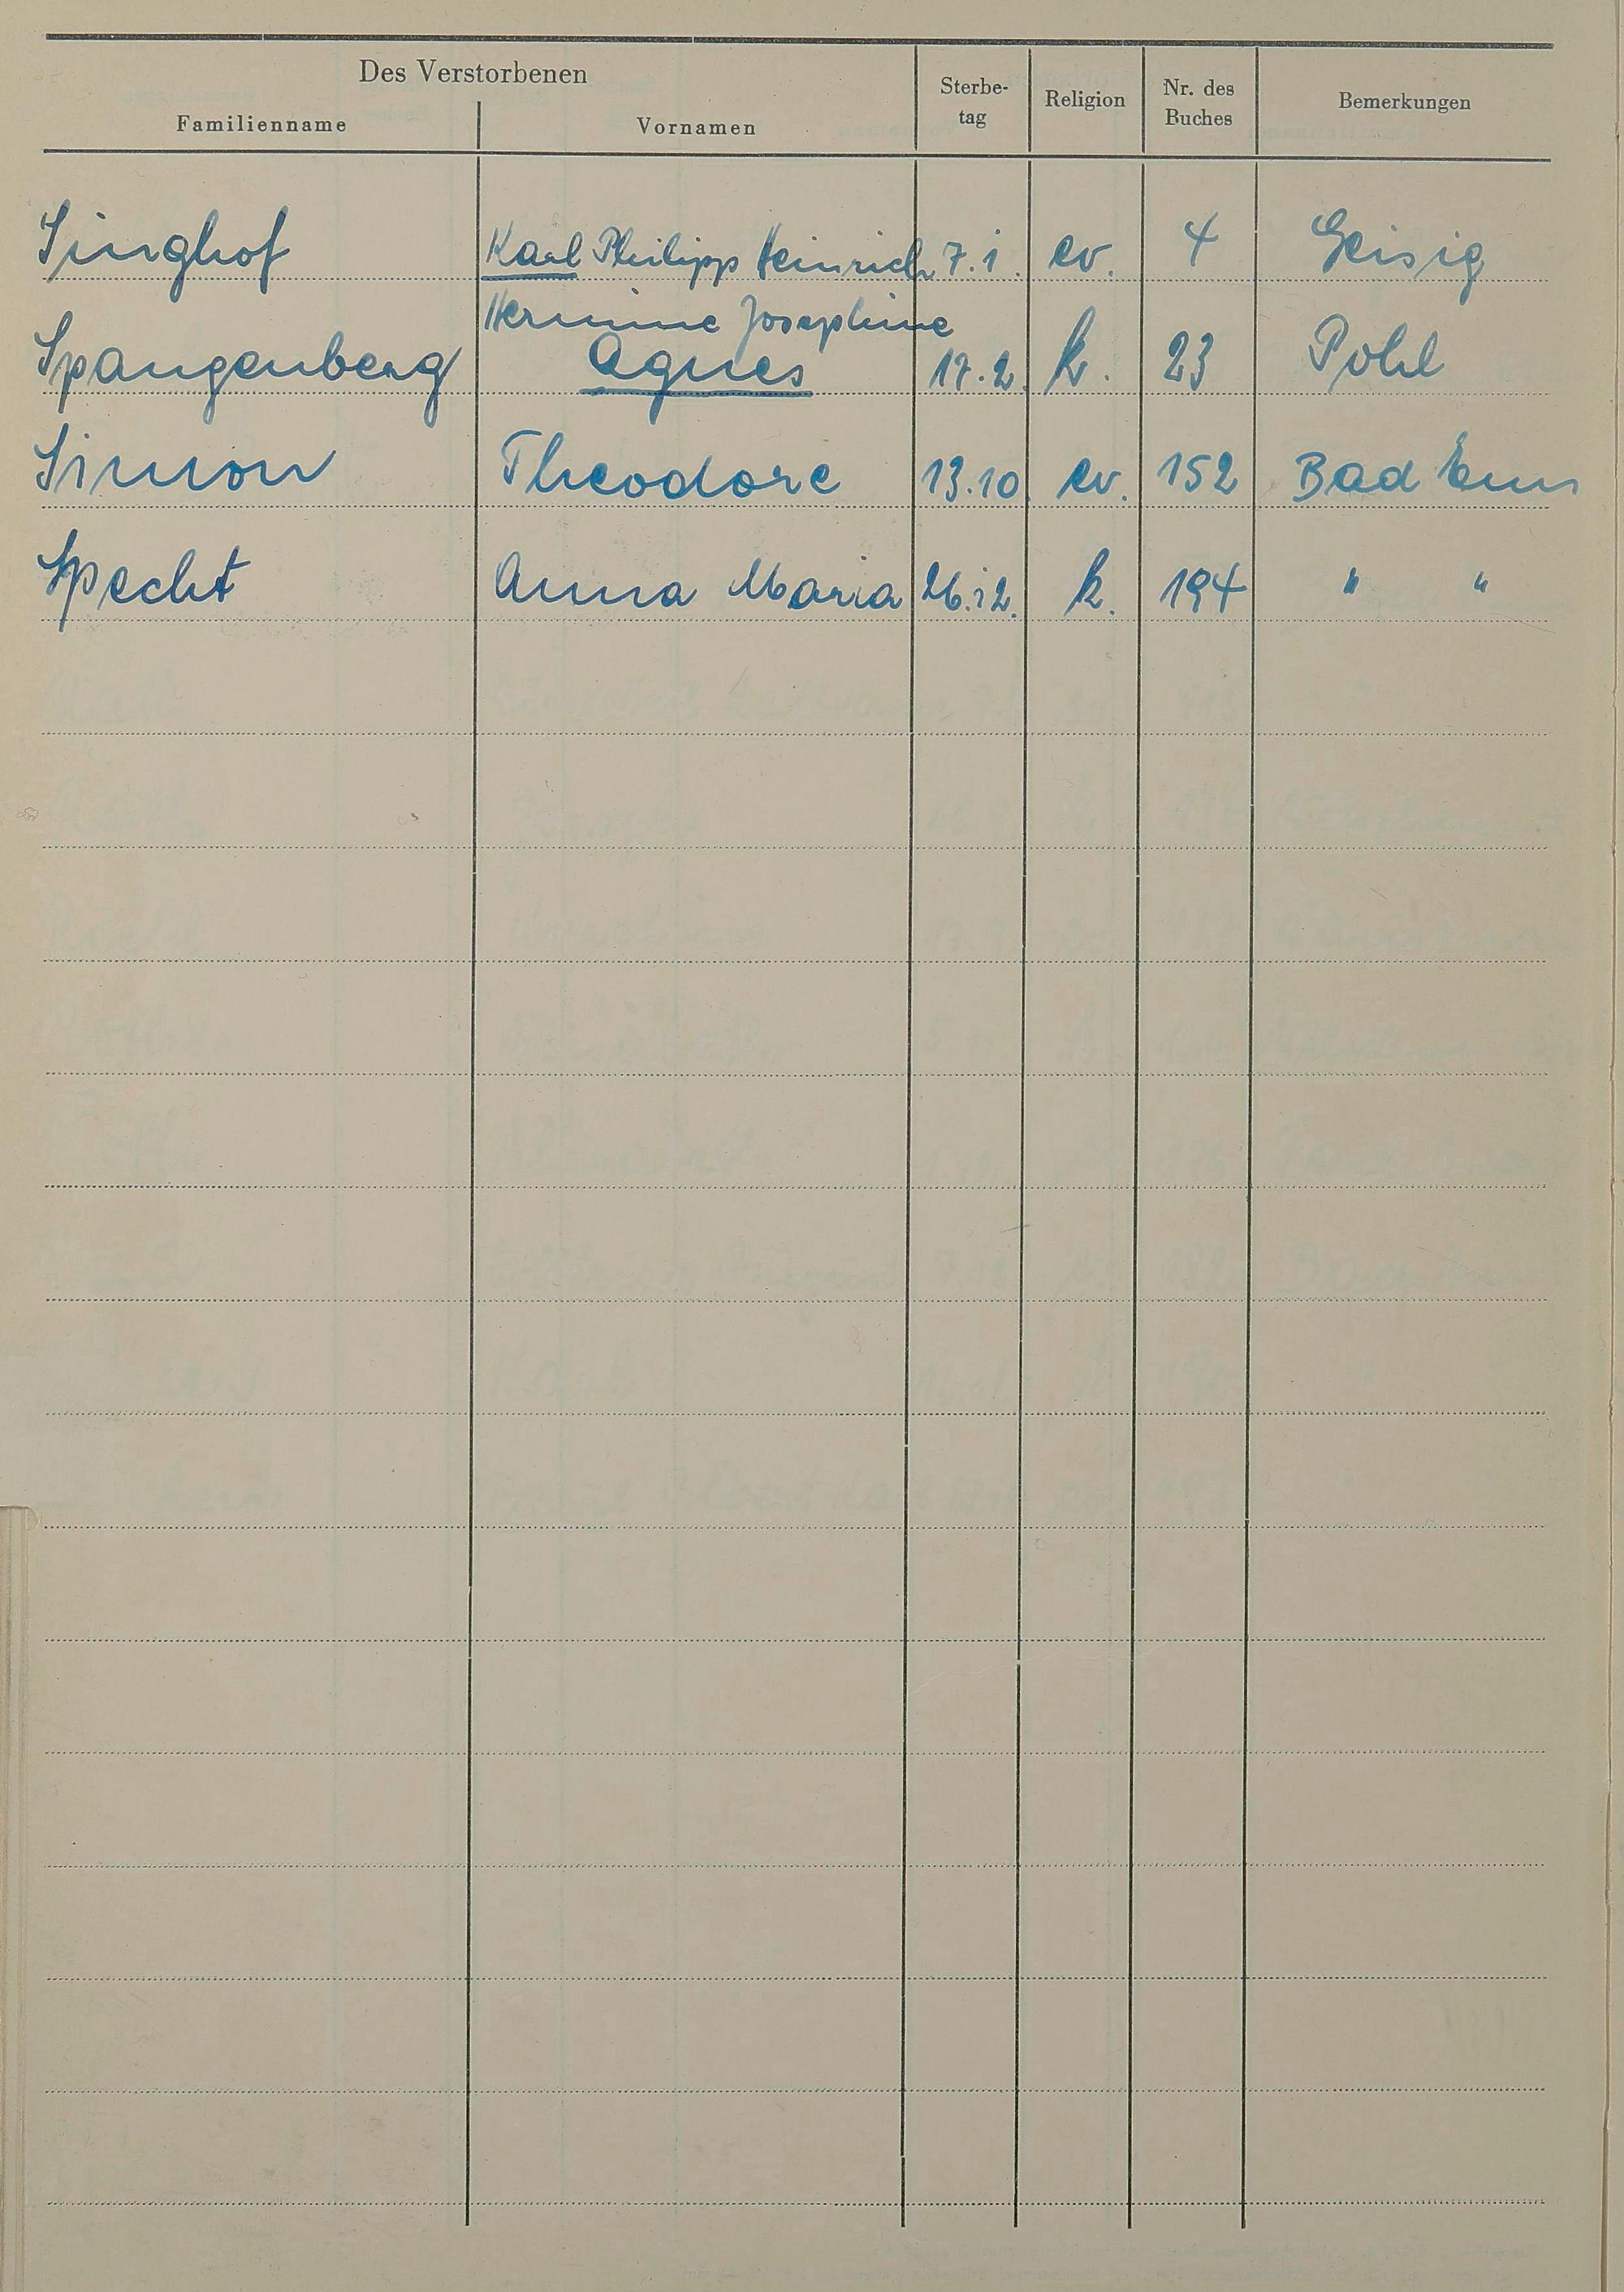 Des Verstorbenen
Familienname Vornamen Sterbe-tag Religion Nr. des Buches Bemerkungen
Singhof Karl Philipp Heinrich 7.1. ev. 4 Geisig
Hermine Josephine
Spangenberg Agnes 17.2. k. 23 Pohl
Simon Theodore 13.10. ev. 152 Bad Ems
Specht Anna Maria 26.12. k. 194 " "